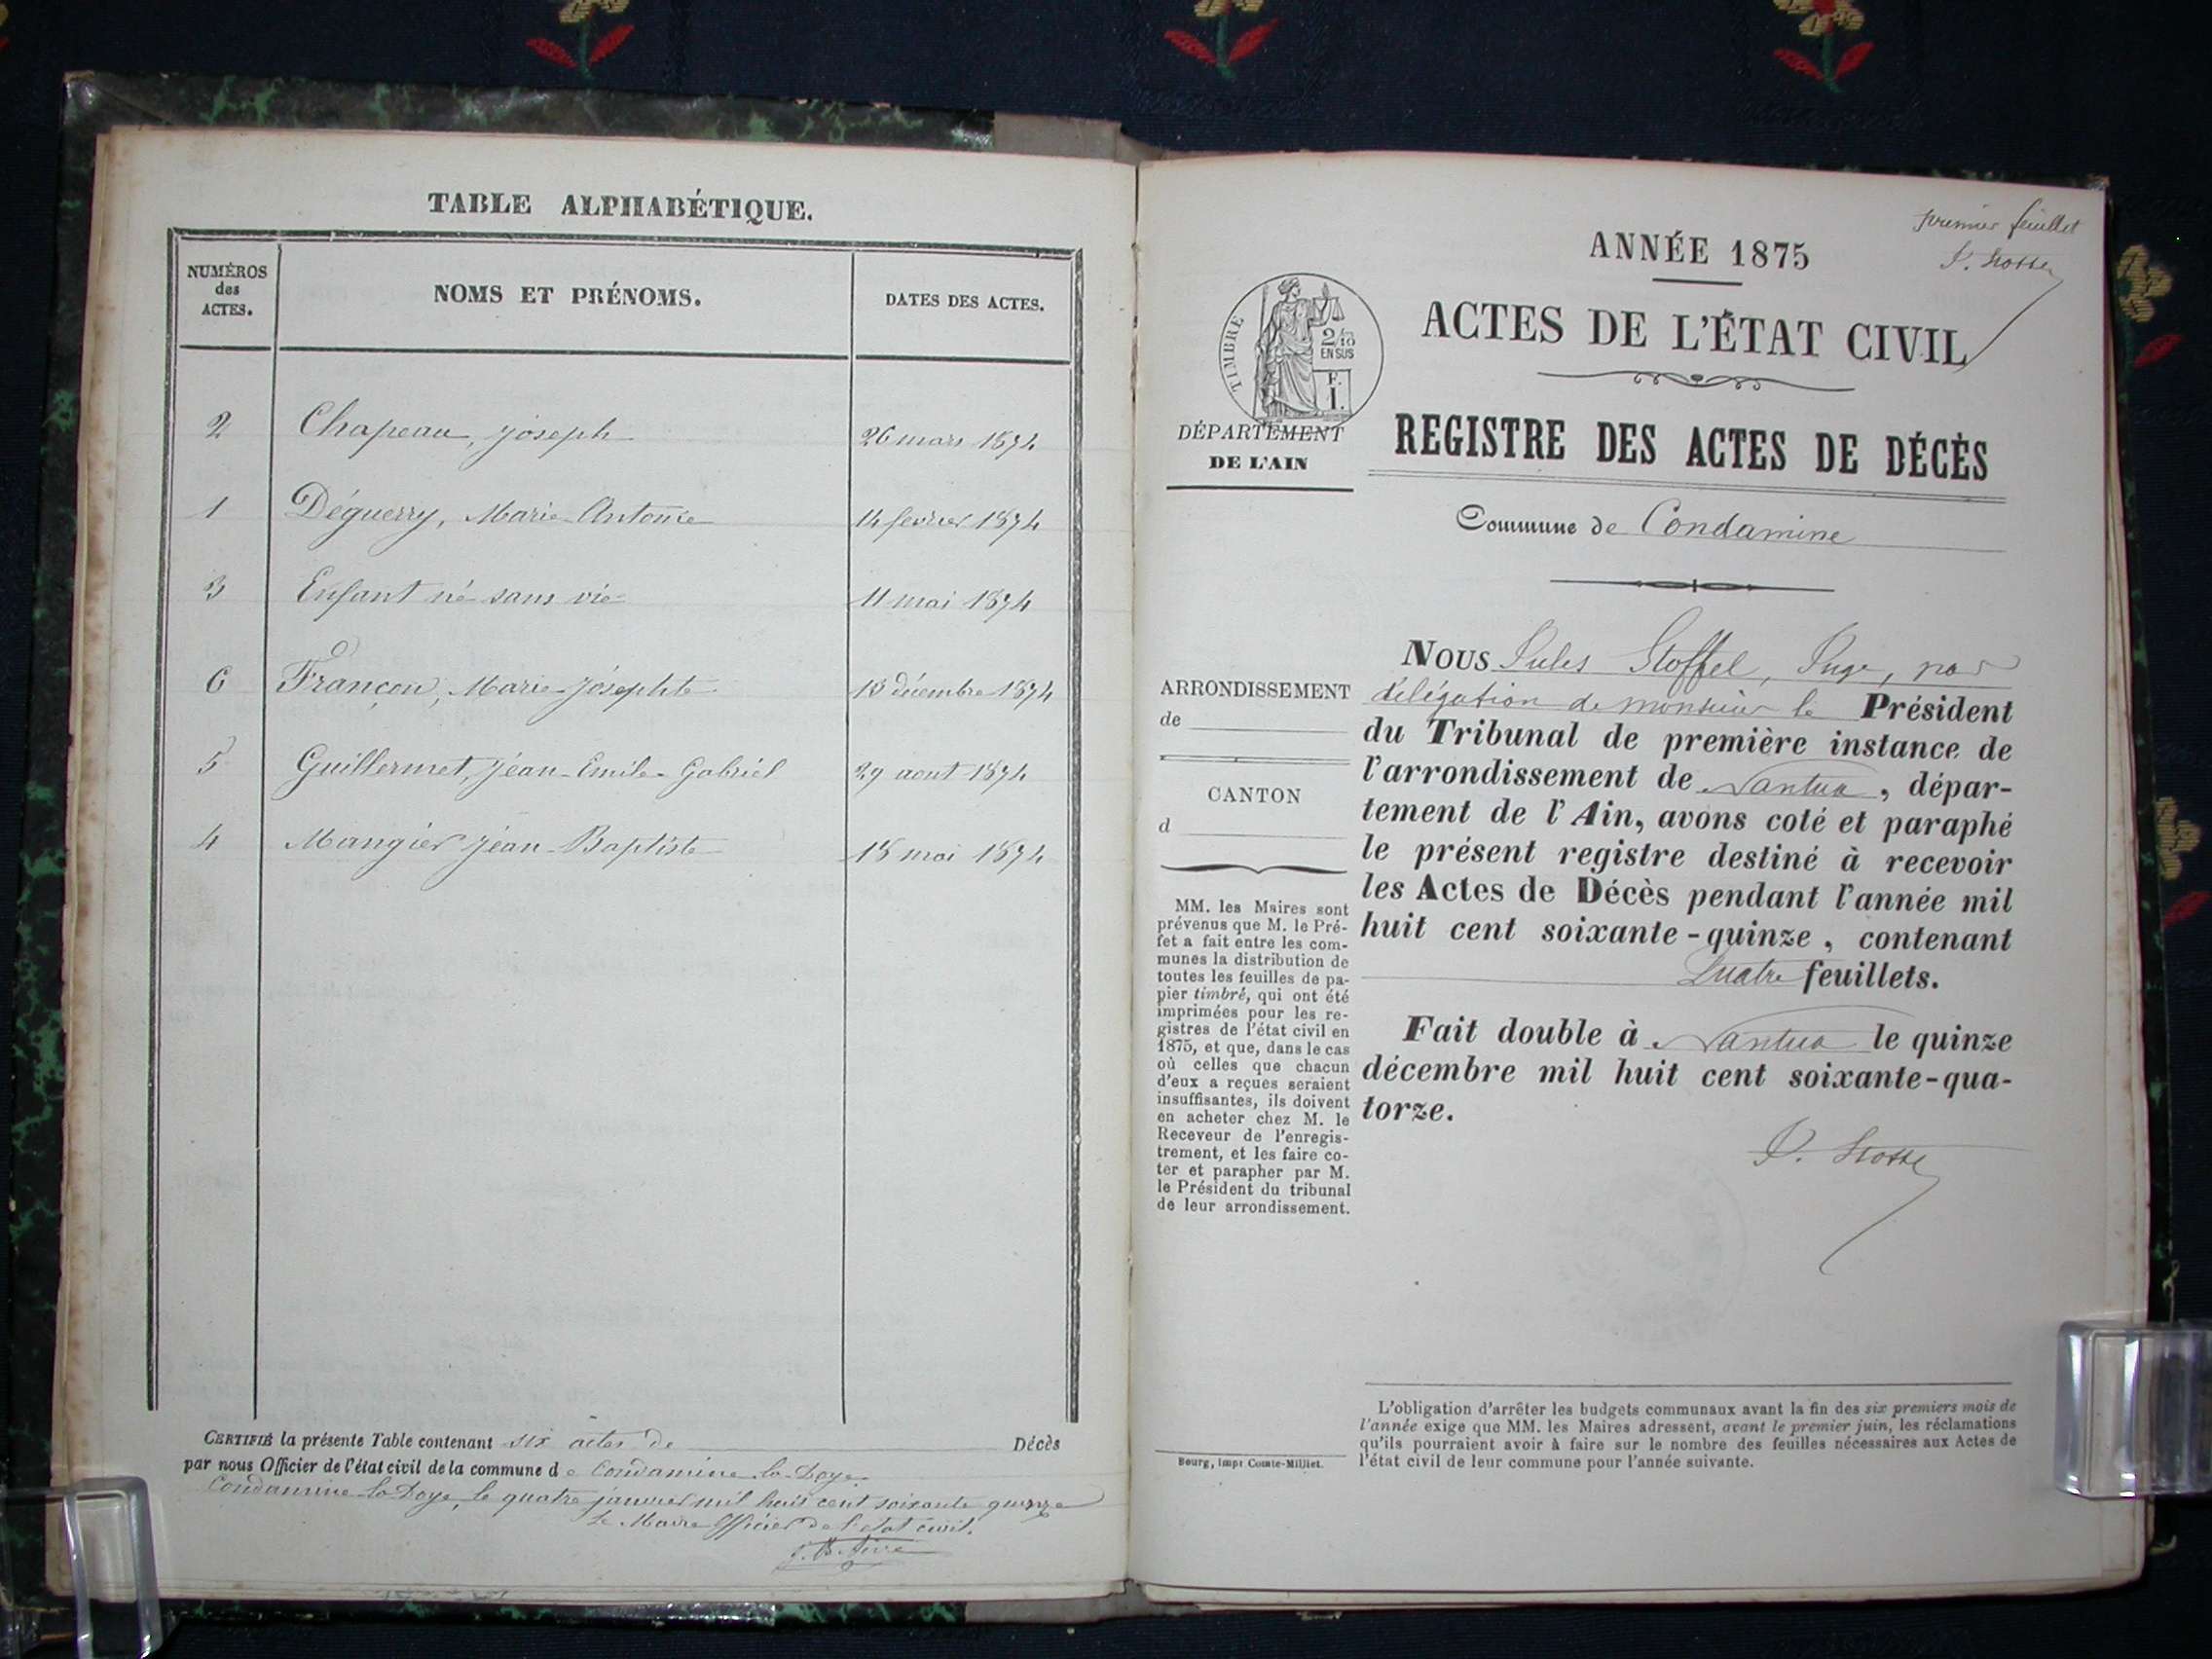 TABLE ALPHABÉTIQUE.
NUMÉROS
des
ACTES.
NOMS ET PRÉNOMS.
DATES DES ACTES.
2 Chapeau, Joseph 26 mars 1874
1 Déguerry, Marie-Antonie 14 fevrier 1874
3 Enfant né sans vie 11 mai 1874
6 Françon, Marie-Josephte 13 décembre 1874
5 Guillermet, Jean-Emile-Gabriel 29 aout 1874
4 Mangier Jean-Baptiste 18 mai 1874
CERTIFIÉ la présente Table contenant six actes de Décès
par nous Officier de l'état civil de la commune de Condamine la Doye
Condamine la Doye, le quatre janvier mil huit cent soixante quinze
Le Maire Officier de l'etat civil.
premier feuillet
ANNÉE 1875
ACTES DE L'ÉTAT CIVIL
TIMBRE
2/10
EN SUS
F.
1.
DÉPARTEMENT
DE L'AIN
REGISTRE DES ACTES DE DÉCÈS
Commune de Condamine
ARRONDISSEMENT
de
CANTON
d
MM. les Maires sont
prévenus que M. le Pré-
fet a fait entre les com-
munes la distribution de
toutes les feuilles de pa-
pier timbré, qui ont été
imprimées pour les re-
gistres de l'état civil en
1875, et que, dans le cas
où celles que chacun
d'eux a reçues seraient
insuffisantes, ils doivent
en acheter chez M. le
Receveur de l'enregis-
trement, et les faire co-
ter et parapher par M.
le Président du tribunal
de leur arrondissement.
Bourg, impr Comte-Milliet.
NOUS Jules Stoffel, Juge, par
délégation de monsieur le Président
du Tribunal de première instance de
l'arrondissement de Nantua, dépar-
tement de l'Ain, avons coté et paraphé
le présent registre destiné à recevoir
les Actes de Décès pendant l'année mil
huit cent soixante-quinze, contenant
Quatre feuillets.
Fait double à Nantua le quinze
décembre mil huit cent soixante-qua-
torze.
L'obligation d'arrêter les budgets communaux avant la fin des six premiers mois de
l'année exige que MM. les Maires adressent, avant le premier juin, les réclamations
qu'ils pourraient avoir à faire sur le nombre des feuilles nécessaires aux Actes de
l'état civil de leur commune pour l'année suivante.